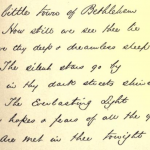 little town of Bethlehem
How still we see thee lie
thy deep & dreamless sleep
The silent stars go by
in thy dark streets shin
The Everlasting Light
hopes & fears of all the
Are met in thee tonight